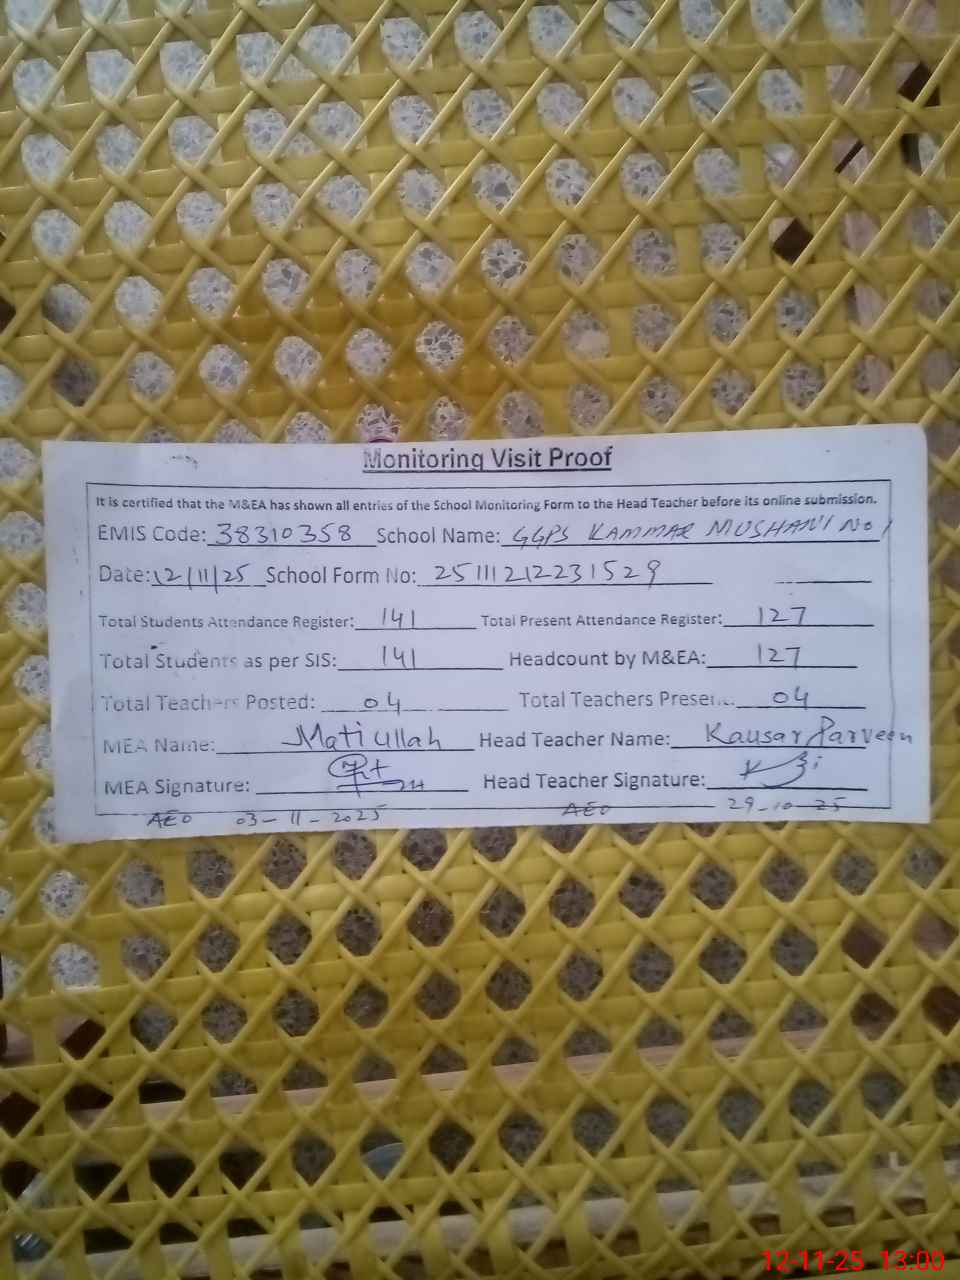 Monitoring Visit Proof
It is certified that the M&EA has shown all entries of the School Monitoring Form to the Head Teacher before its online submission.
EMIS Code: 38310358 School Name: GGPS KAMMAR MUSHANI No 1
Date: 12/11/25 School Form No: 251112122231529
Total Students Attendance Register: 141 Total Present Attendance Register: 127
Total Students as per SIS: 141 Headcount by M&EA: 127
Total Teachers Posted: 04 Total Teachers Present: 04
MEA Name: Mati ullah Head Teacher Name: Kausar Parveen
MEA Signature: Head Teacher Signature:
AEO 03-11-2025 AEO 29-10-25
12-11-25 13:00